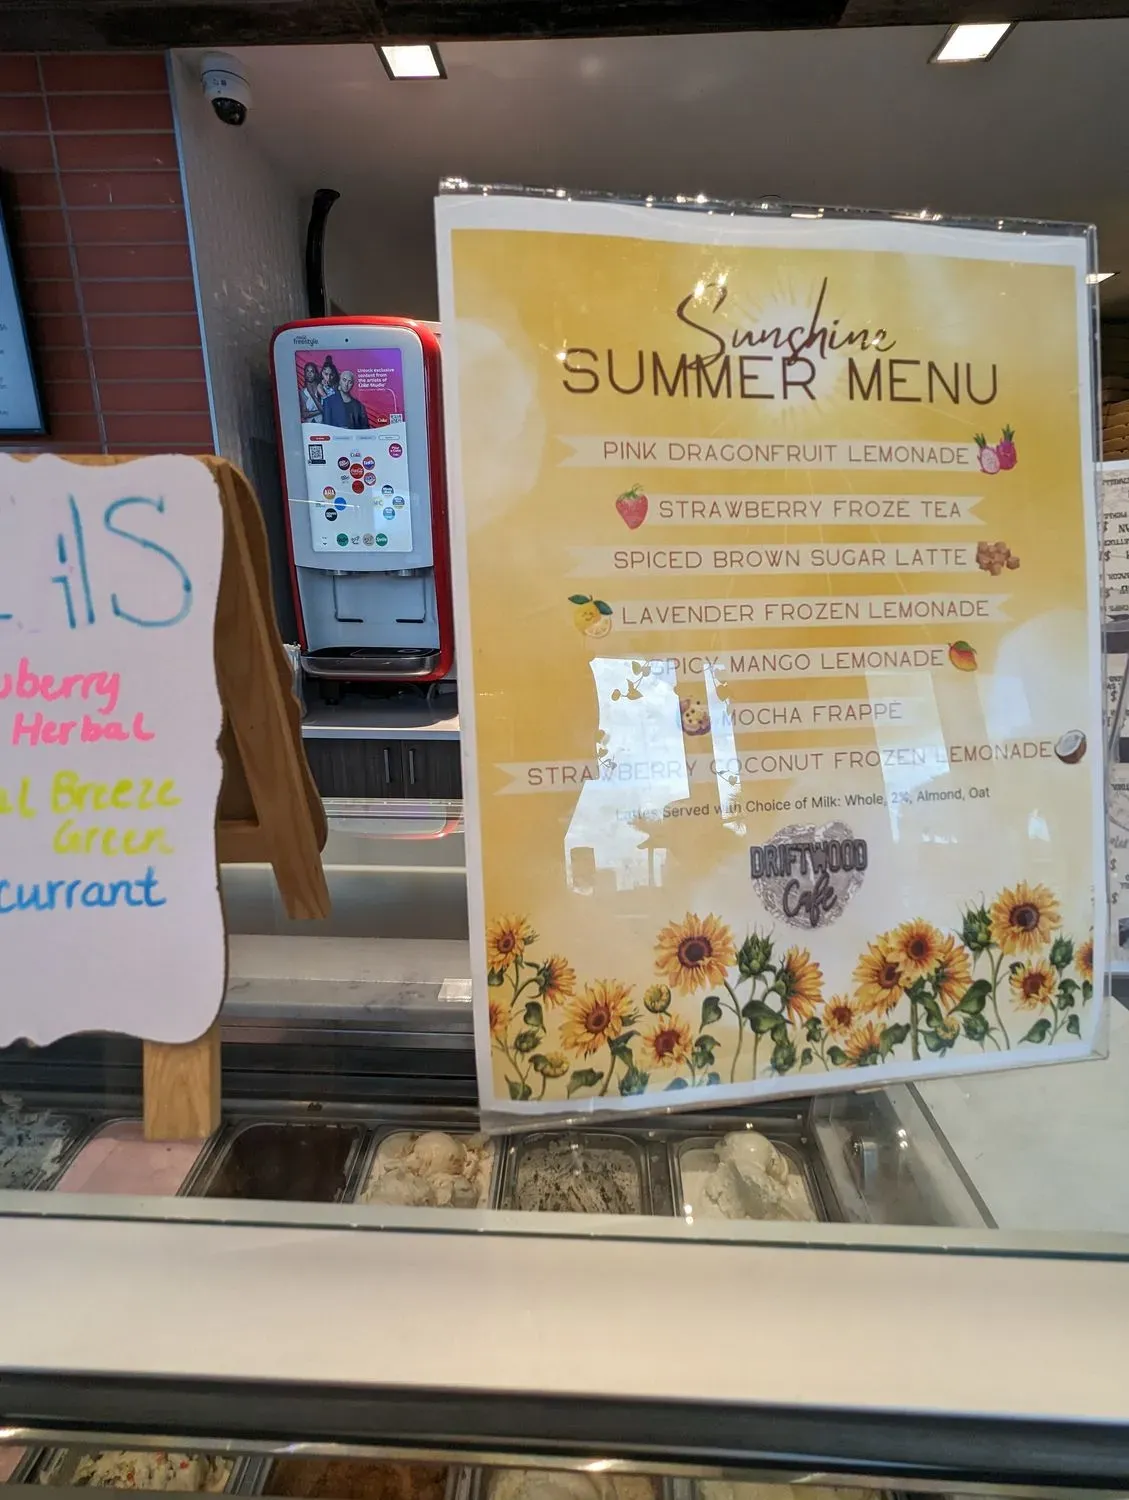 Sunshine
SUMMER MENU
PINK DRAGONFRUIT LEMONADE
STRAWBERRY FROZÉ TEA
SPICED BROWN SUGAR LATTE
LAVENDER FROZEN LEMONADE
SPICY MANGO LEMONADE
MOCHA FRAPPÉ
STRAWBERRY COCONUT FROZEN LEMONADE
Lattes Served with Choice of Milk: Whole, 2%, Almond, Oat
DRIFTWOOD
Cafe
Herbal
Breeze
Green
currant
freestyle
Unlock exclusive
content from
the artists of
Coke Studio